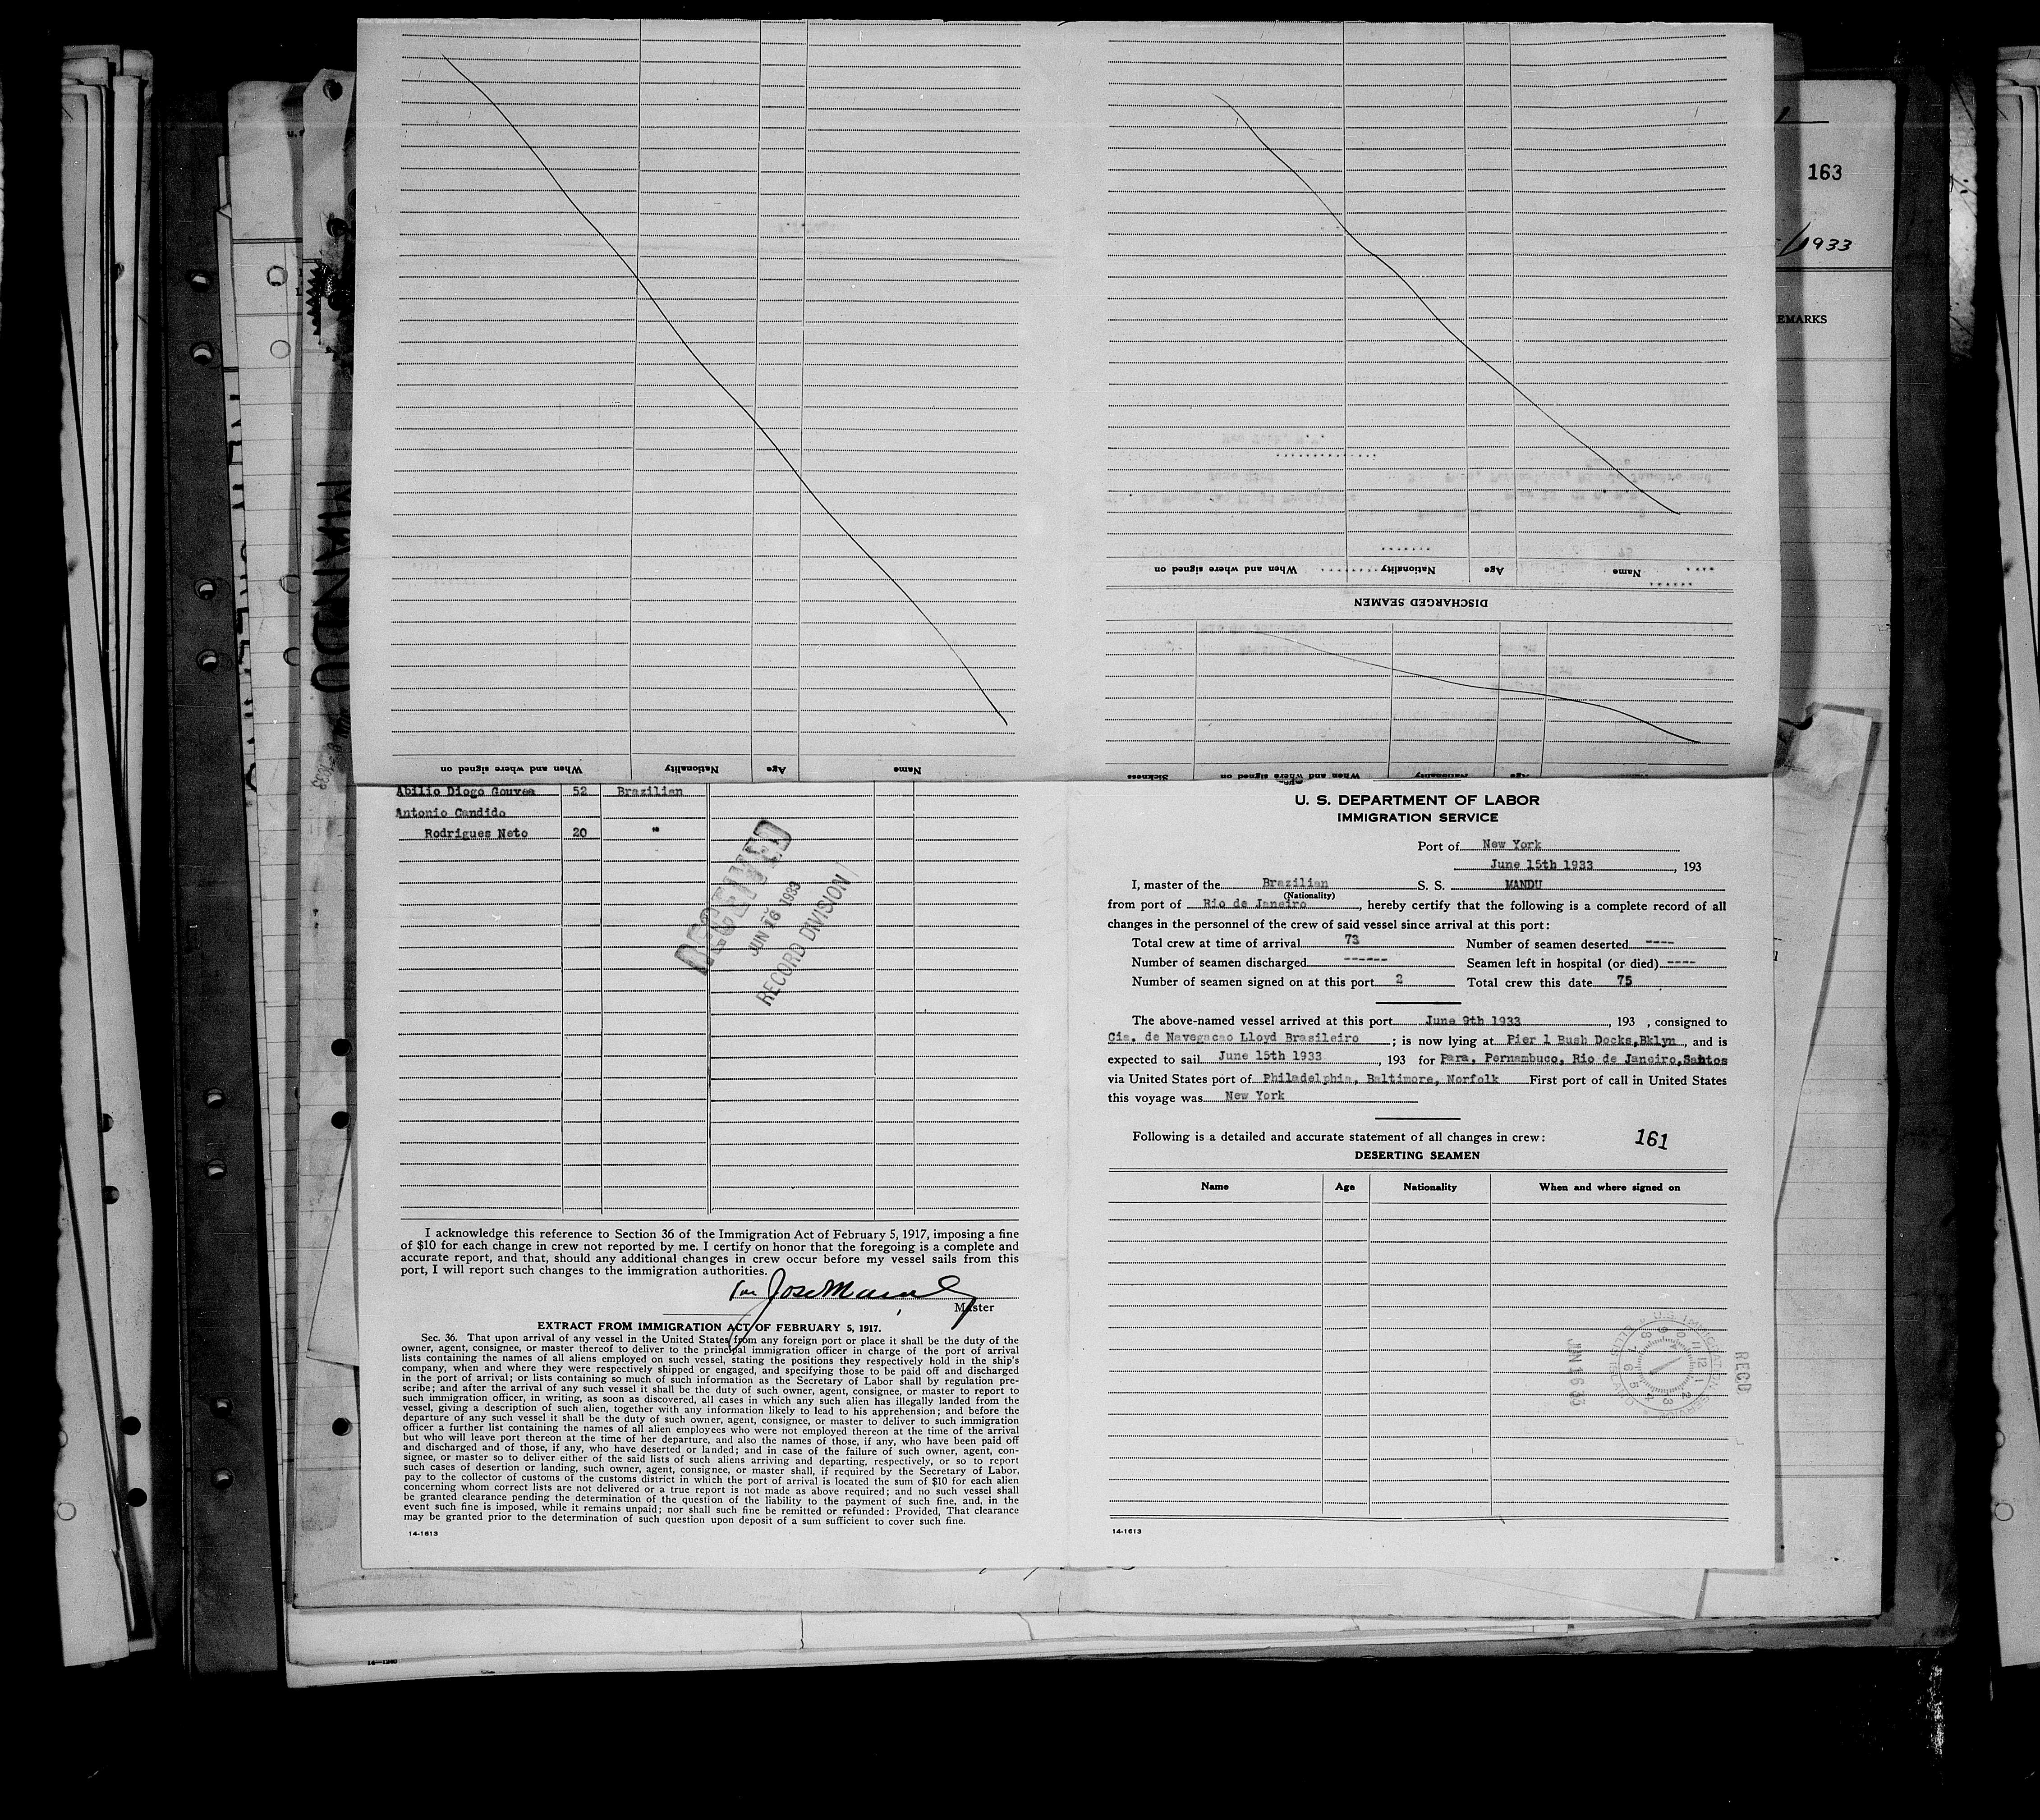 163
1933
EMARKS
MANDU
When and where signed on
Nationality
Age
Name
DISCHARGED SEAMEN
Sickness
When and where signed on
Nationality
Age
Name
When and where signed on
Nationality
Age
Name
Abilio Diogo Gouvea 52 Brazilian
Antonio Candido
Rodrigues Neto 20 "
RECEIVED
JUN 16 1933
RECORD DIVISION
I acknowledge this reference to Section 36 of the Immigration Act of February 5, 1917, imposing a fine
of $10 for each change in crew not reported by me. I certify on honor that the foregoing is a complete and
accurate report, and that, should any additional changes in crew occur before my vessel sails from this
port, I will report such changes to the immigration authorities.
Master
EXTRACT FROM IMMIGRATION ACT OF FEBRUARY 5, 1917.
Sec. 36. That upon arrival of any vessel in the United States from any foreign port or place it shall be the duty of the
owner, agent, consignee, or master thereof to deliver to the principal immigration officer in charge of the port of arrival
lists containing the names of all aliens employed on such vessel, stating the positions they respectively hold in the ship's
company, when and where they were respectively shipped or engaged, and specifying those to be paid off and discharged
in the port of arrival; or lists containing so much of such information as the Secretary of Labor shall by regulation pre-
scribe; and after the arrival of any such vessel it shall be the duty of such owner, agent, consignee, or master to report to
such immigration officer, in writing, as soon as discovered, all cases in which any such alien has illegally landed from the
vessel, giving a description of such alien, together with any information likely to lead to his apprehension; and before the
departure of any such vessel it shall be the duty of such owner, agent, consignee, or master to deliver to such immigration
officer a further list containing the names of all alien employees who were not employed thereon at the time of the arrival
but who will leave port thereon at the time of her departure, and also the names of those, if any, who have been paid off
and discharged and of those, if any, who have deserted or landed; and in case of the failure of such owner, agent, con-
signee, or master so to deliver either of the said lists of such aliens arriving and departing, respectively, or so to report
such cases of desertion or landing, such owner, agent, consignee, or master shall, if required by the Secretary of Labor,
pay to the collector of customs of the customs district in which the port of arrival is located the sum of $10 for each alien
concerning whom correct lists are not delivered or a true report is not made as above required; and no such vessel shall
be granted clearance pending the determination of the question of the liability to the payment of such fine, and, in the
event such fine is imposed, while it remains unpaid; nor shall such fine be remitted or refunded: Provided, That clearance
may be granted prior to the determination of such question upon deposit of a sum sufficient to cover such fine.
14-1613
U. S. DEPARTMENT OF LABOR
IMMIGRATION SERVICE
Port of New York
June 15th 1933, 193
I, master of the Brazilian S. S. MANDU
(Nationality)
from port of Rio de Janeiro, hereby certify that the following is a complete record of all
changes in the personnel of the crew of said vessel since arrival at this port:
Total crew at time of arrival 73 Number of seamen deserted ----
Number of seamen discharged ------ Seamen left in hospital (or died) ----
Number of seamen signed on at this port 2 Total crew this date 75
The above-named vessel arrived at this port June 9th 1933, 193 , consigned to
Cia. de Navegacao Lloyd Brasileiro; is now lying at Pier 1 Bush Docks, Bklyn, and is
expected to sail June 15th 1933, 193 for Para, Pernambuco, Rio de Janeiro, Santos
via United States port of Philadelphia, Baltimore, Norfolk First port of call in United States
this voyage was New York
Following is a detailed and accurate statement of all changes in crew:
161
DESERTING SEAMEN
Name Age Nationality When and where signed on
RECD
JUN 16 33
14-1613
14-1240